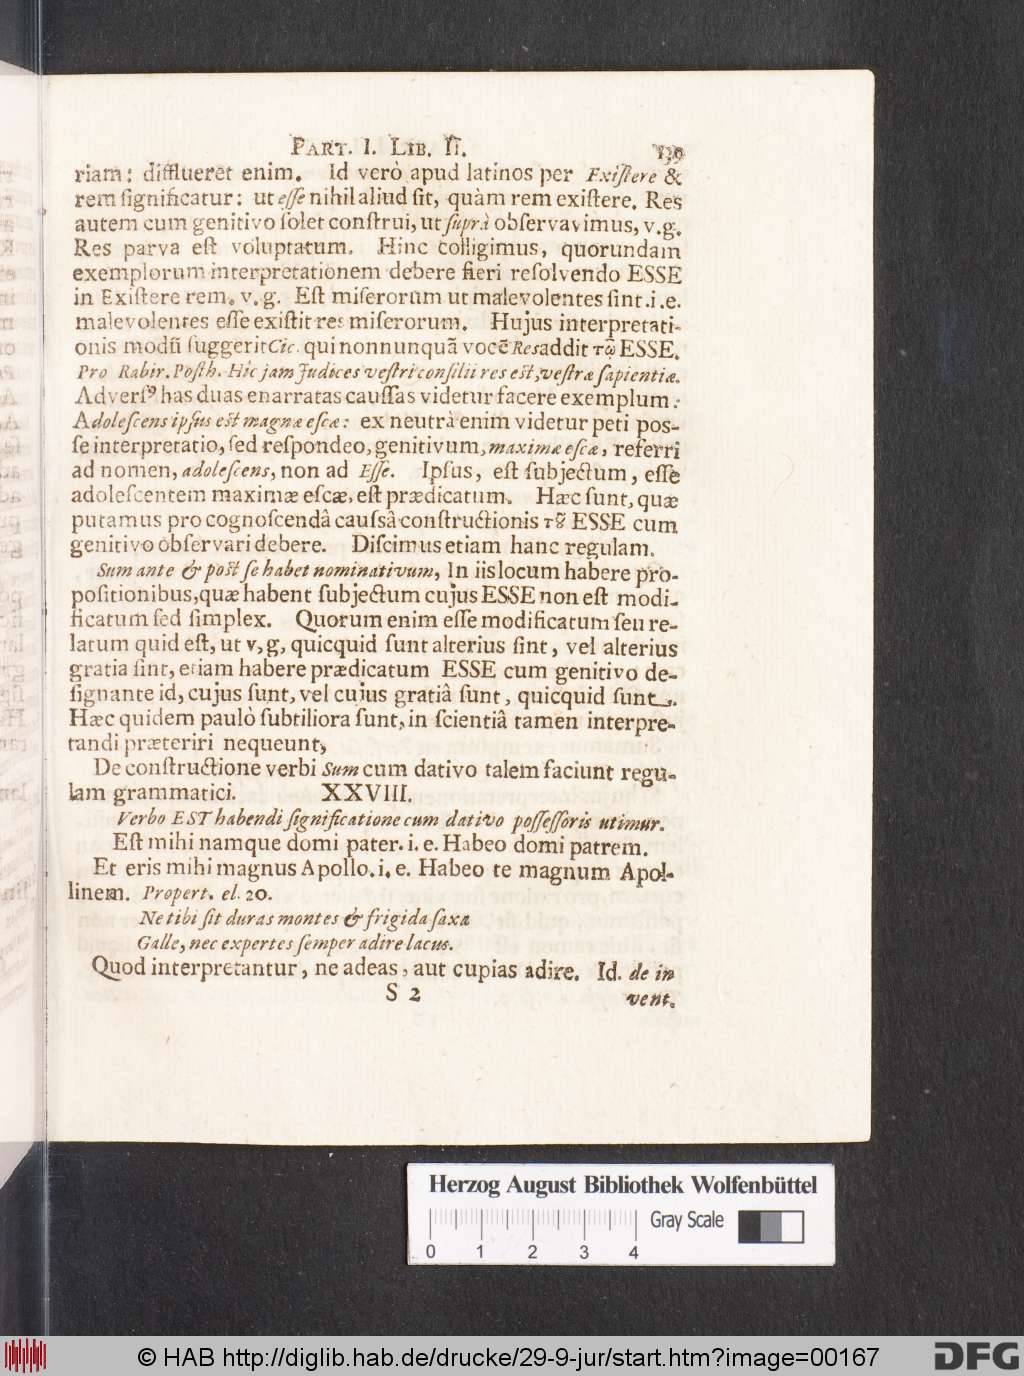 PART. I. LIB. II. 139
riam: difflueret enim. Id verò apud latinos per Exiſtere &
rem ſignificatur: ut eſſe nihil aliud ſit, quàm rem exiſtere. Res
autem cum genitivo ſolet conſtrui, ut ſuprà obſervavimus, v.g.
Res parva eſt voluptatum. Hinc colligimus, quorundam
exemplorum interpretationem debere fieri reſolvendo ESSE
in Exiſtere rem. v. g. Eſt miſerorum ut malevolentes ſint. i. e.
malevolentes eſſe exiſtit res miſerorum. Hujus interpretati-
onis modũ ſuggerit Cic. qui nonnunquã vocẽ Res addit τῷ ESSE.
Pro Rabir. Poſth. Hic jam Judices veſtri conſilii res eſt, veſtræ ſapientiæ.
Adverſꝰ has duas enarratas cauſſas videtur facere exemplum:
Adoleſcens ipſus eſt magnæ eſcæ: ex neutrâ enim videtur peti poſ-
ſe interpretatio, ſed reſpondeo, genitivum, maximæ eſcæ, referri
ad nomen, adoleſcens, non ad Eſſe. Ipſus, eſt ſubjectum, eſſe
adoleſcentem maximæ eſcæ, eſt prædicatum. Hæc ſunt, quæ
putamus pro cognoſcendâ cauſsâ conſtructionis τȣ͂ ESSE cum
genitivo obſervari debere. Diſcimus etiam hanc regulam.
Sum ante & poſt ſe habet nominativum, In iis locum habere pro-
poſitionibus, quæ habent ſubjectum cujus ESSE non eſt modi-
ficatum ſed ſimplex. Quorum enim eſſe modificatum ſeu re-
latum quid eſt, ut v, g, quicquid ſunt alterius ſint, vel alterius
gratia ſint, etiam habere prædicatum ESSE cum genitivo de-
ſignante id, cujus ſunt, vel cujus gratiâ ſunt, quicquid ſunt.
Hæc quidem paulò ſubtiliora ſunt, in ſcientiâ tamen interpre-
tandi præteriri nequeunt,
De conſtructione verbi Sum cum dativo talem faciunt regu-
lam grammatici. XXVIII.
Verbo EST habendi ſignificatione cum dativo poſſeſſoris utimur.
Eſt mihi namque domi pater. i. e. Habeo domi patrem.
Et eris mihi magnus Apollo. i. e. Habeo te magnum Apol-
linem. Propert. el. 20.
Ne tibi ſit duras montes & frigida ſaxa
Galle, nec expertes ſemper adire lacus.
Quod interpretantur, ne adeas, aut cupias adire. Id. de in
S 2 vent.
Herzog August Bibliothek Wolfenbüttel
Gray Scale
0 1 2 3 4
© HAB http://diglib.hab.de/drucke/29-9-jur/start.htm?image=00167
DFG